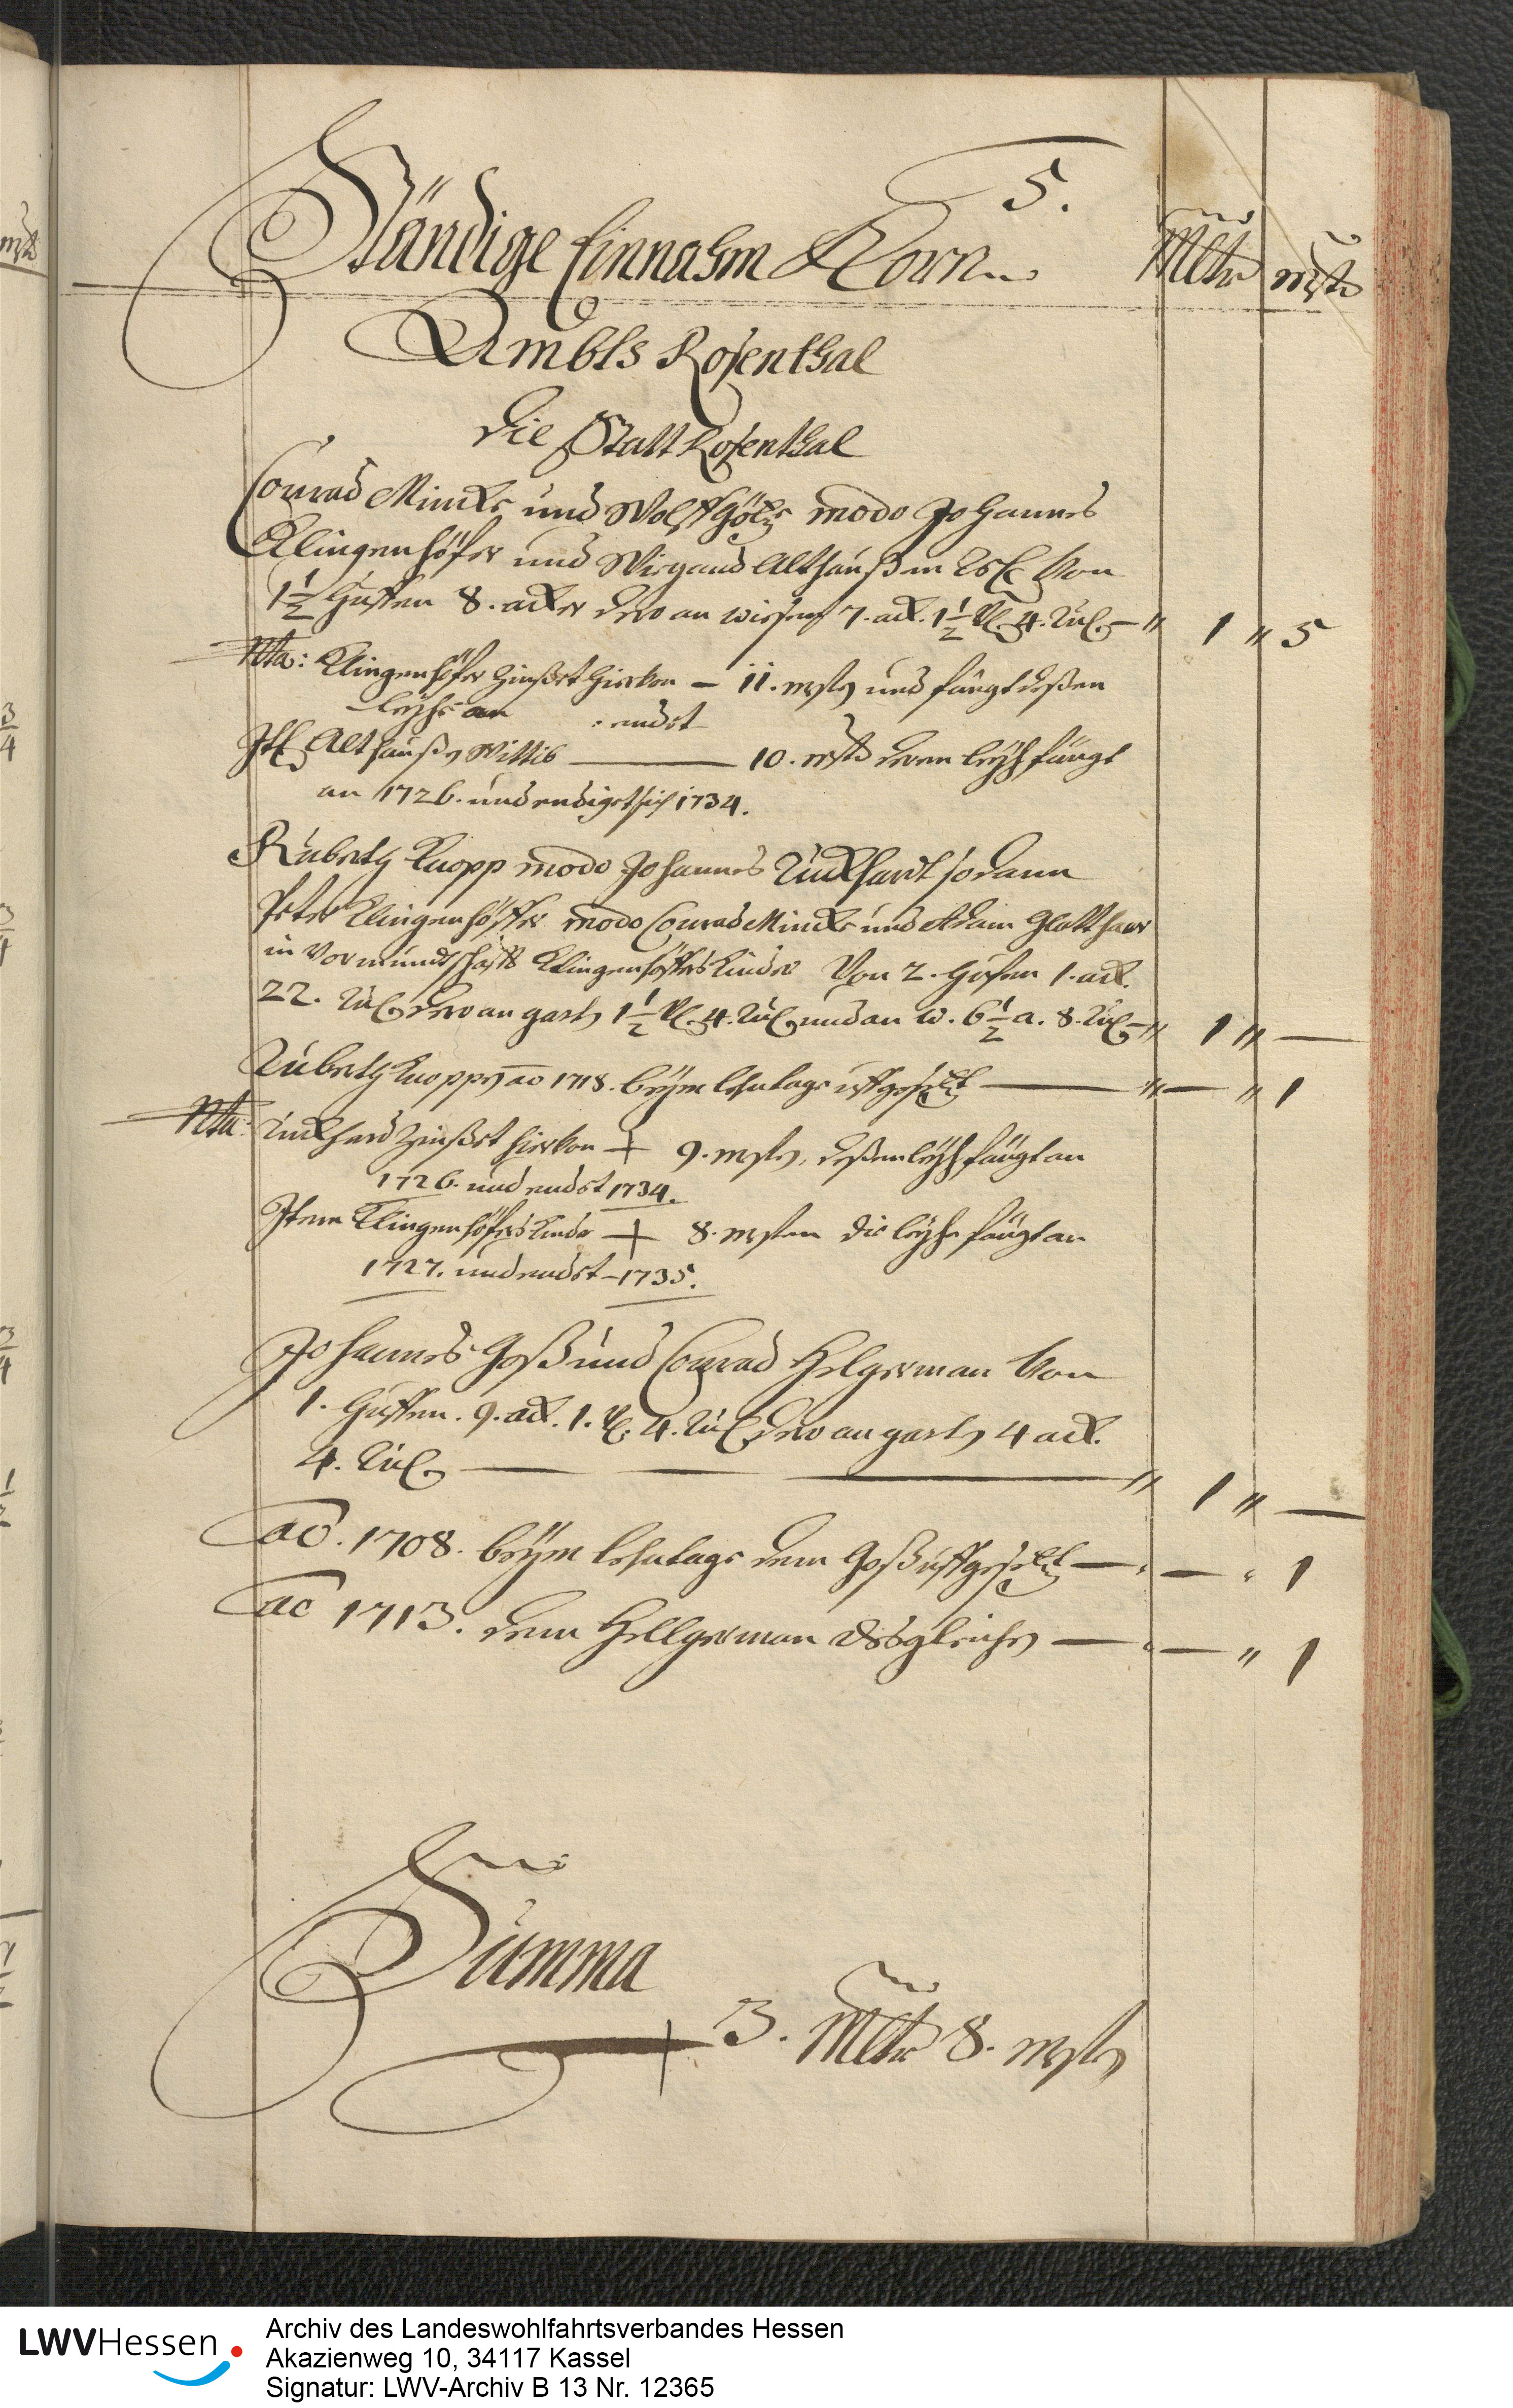 5.
Ständige Einnahm Korn
Mltr mste
Ambts Rosenthal
die Statt Rosenthal
Conrad Mincke und Wolff Götz modo Johannes
Klingenhöfer und Wiegand Althaußen von
1 1/2 Huffen 8. acker dero an wiesen 7. ack. 1 1/2 4. Rut. — " 1 " 5
Nta: Klingenhöfer Zinßet hiervon — 11. mste und fängt deßen
Leyhe an endet
Althaußen Wittib — 10. mste deren Leyh fängt
an 1726. und endiget sich 1734.
Ruberth Knopp modo Johannes Rückhardt so dann
Peter Klingenhöffer modo Conrad Mincke und Adam Glatthaar
in Vormundschafft Klingenhöffers Kinder Von 2. Hufen 1. ack.
22. Rut. dero an garth 1 1/2 4. Rut. und an w. 6 1/2 a. 8. Rut. — " 1 " —
Ruberth Knoppen ao 1718. beym Lehntage uffgesetzt — " — " 1
Nta: Rückhard Zinßet hiervon + 9. mste, deßen Leyh fängt an
1726. und endet 1734.
Item Klingenhöfers Kinder + 8. mesten die Leyhe fängt an
1727. und endet — 1735.
Johannes Goß und Conrad Helgerman Von
1. Huffen. 9. ack. 1. 4. Rut. dero an garth 4 ack.
4. Rut. — — — " 1 " —
ao. 1708. beym Lehntage dem Goß uffgesetzt — " — " 1
ao 1713. dem Hellgerman desgleichen — " — " 1
Summa
3. Mltr 8. mste
LWVHessen
Archiv des Landeswohlfahrtsverbandes Hessen
Akazienweg 10, 34117 Kassel
Signatur: LWV-Archiv B 13 Nr. 12365